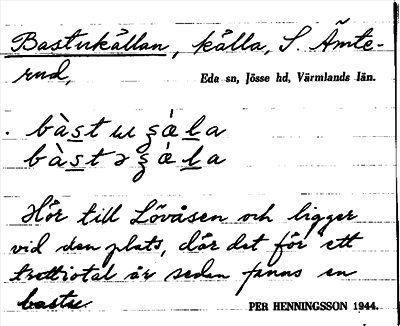 Bastukällan, källa, S. Ämte-
rud,
Eda sn, Jösse hd, Värmlands län.
Hör till Lövåsen och ligger
vid den plats, där det för ett
trettiotal år sedan fanns en
bastu.
PER HENNINGSSON 1944.